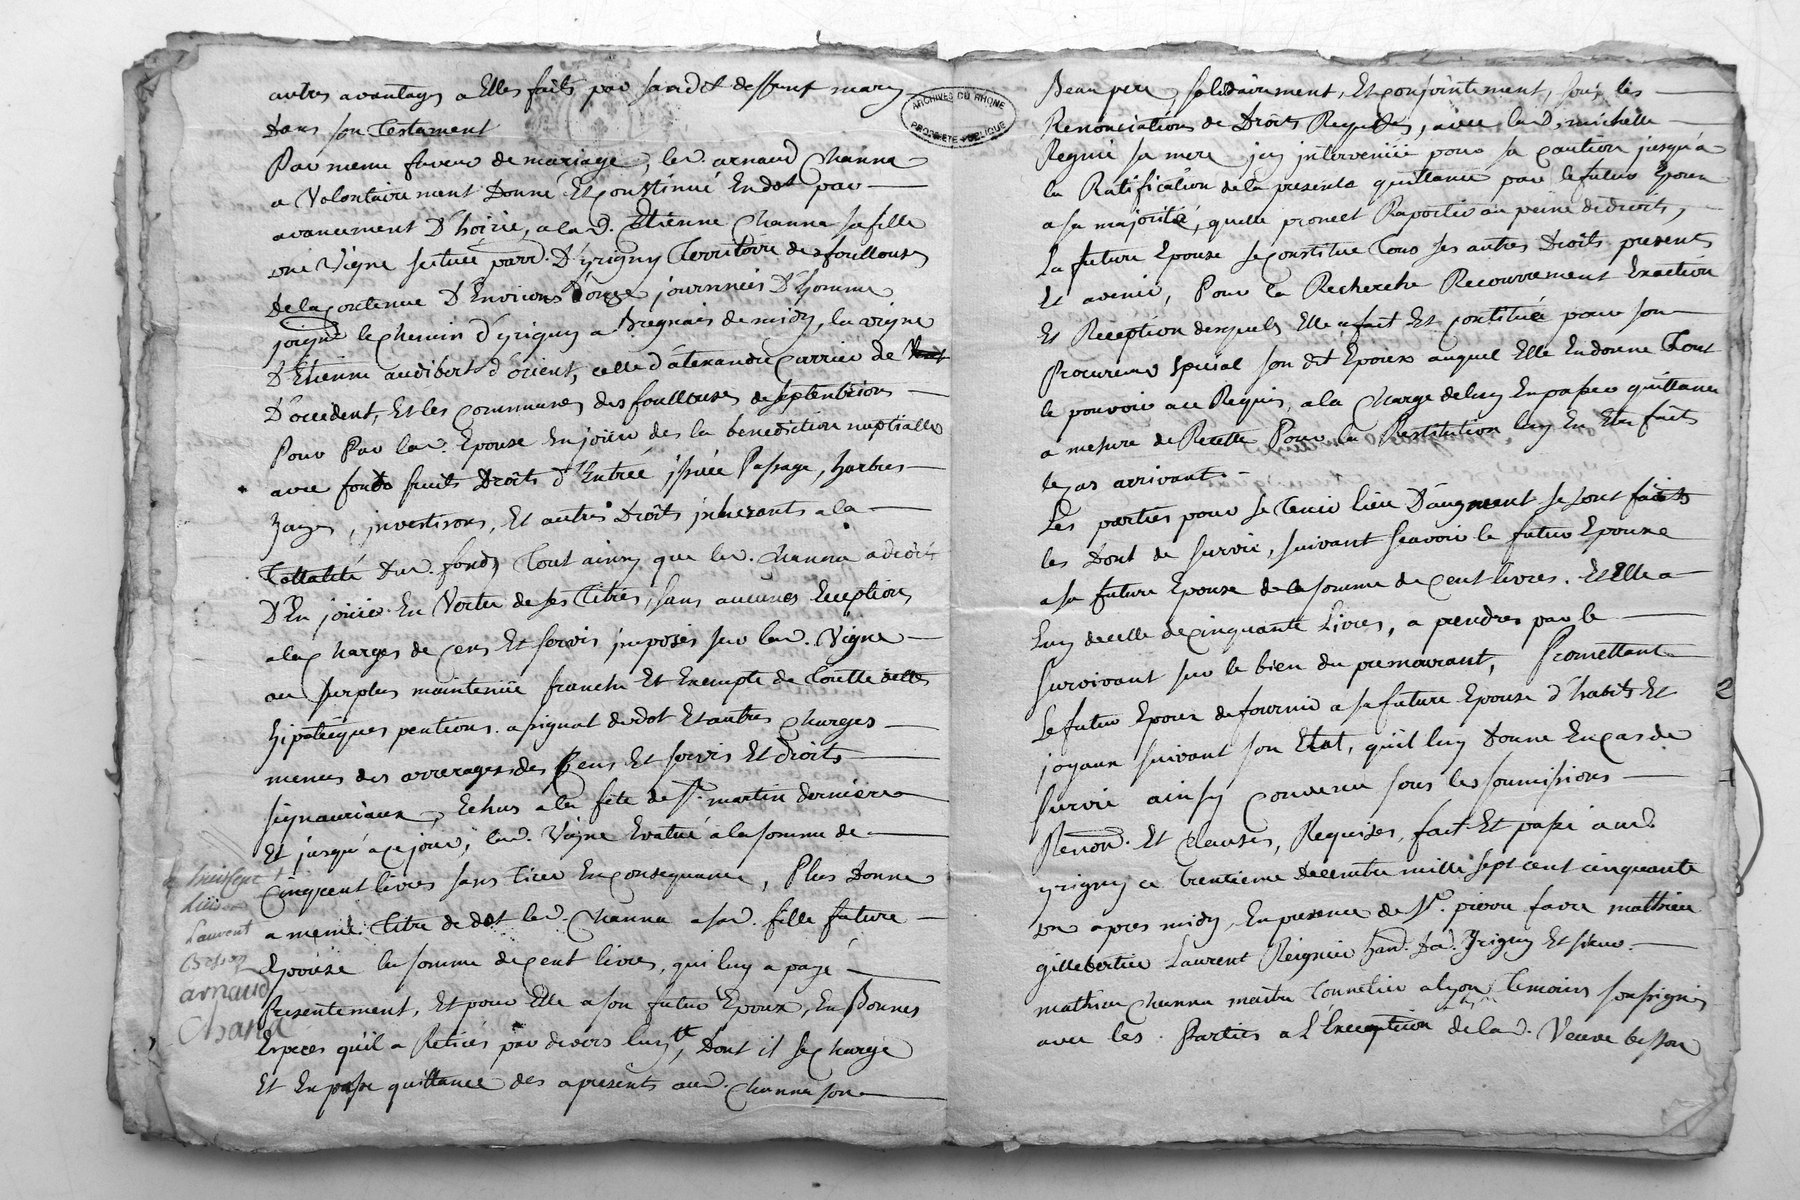 autres avantages a Elles faits par sondit deffunt mary
Dans son Testament
Par meme faveur de mariage, led. arnaud Channa
a Volontairement Donné Et constitué En dot par
avancement D'hoirie, a lad. Etienne Channa sa fille
une Vigne scituée parr. D'yrigny Territoire des foullouses
de la contenue D'Environs Donze journnées D'homme
joignt le Chemin d'yrigny a Bregnais de midy, la vigne
D'Etienne audibert d'orient, celle d'alexandre Carrier de
D'occident, Et les communes des foullouses de septentrion
Pour Par lad. Epouse En joüir des la benediction nuptialle
avec fonds fruits Droits d'Entrée issüe Passage, harbres
hayes, investisons, Et autres Droits inherants a la
Tottalité dud. fonds Tout ainsy que led. Channa a droit
D'En joüir En Vertu de ses Titres, sans aucunes Exception
a la Charges de cens Et servis imposés sur lad. Vigne
au surplus maintenüe franche Et Exempte de Toutte dettes
hipoteques pentions assignat de dot Et autres Charges
memes des arrerages des Cens Et servis Et droits
signauriaux, Echus a la fête de St. martin derniere
Et jusqu'a ce jour, lad. Vigne Evaluée a la somme de
Cinq cent livres sans Tirer En consequance, Plus Donne
a meme Titre de dot led. Channa a sad. fille future
Epouse la somme de cent livres, qui luy a payé
Presentement, Et pour Elle a son futur Epoux, En Bonnes
Especes qu'il a Retirés par devers luy, Dont il se charge
Et En passe quittance des apresents aud. Channa son
Laurent
Besson
arnaud
Chana
ARCHIVES DU RHONE
PROPRIETE PUBLIQUE
Beau pere, solidairement, Et conjointement, sous les
Renonciations de Droits Requises, avec lad. michelle
Regnié sa mere icy intervenüe pour sa caution jusqu'a
la Ratification de la presente quittance par le futur Epoux
a sa majorité, qu'elle promet Raporter au peine de droits,
La future Epouse se constitue Tous ses autres Droits presents
Et avenir, Pour la Recherche Recouvrement Exaction
Et Réception desquels Elle a fait Et constitué pour son
Procureur special son dit Epoux auquel Elle En donne Tout
le pouvoir au Requis, a la Charge de luy En passer quittance
a mesure de Recette Pour la Restitution luy En Etre faits
le cas arrivant
Les parties pour se Tenir lieu D'augment se sont faits
les Dont de survie, suivant scavoir le futur Epouxe
a sa future Epouse de la somme de cent livres. Et Elle a
Luy de celle de cinquante Livres, a prendres par le
survivant sur le bien du premourant, Promettant
Le futur Epoux de fournir a sa future Epouse d'habits Et
joyaux suivant son Etat, qu'il luy Donne En cas de
survie ainsy convenu sous les soumissions
Renon. Et Clauses, Requises, fait Et passé aud.
yrigny ce trentieme decembre mille sept cent cinquante
un apres midy, En presence de Sr. pierre favre mathieu
gillebertier Laurent Reignier hand. dud. Yrigny Et sieur
mathieu Channa maitre Tonnelier a lyon Temoins soussignés
avec les Parties a L'Exception de lad. Veuve besson